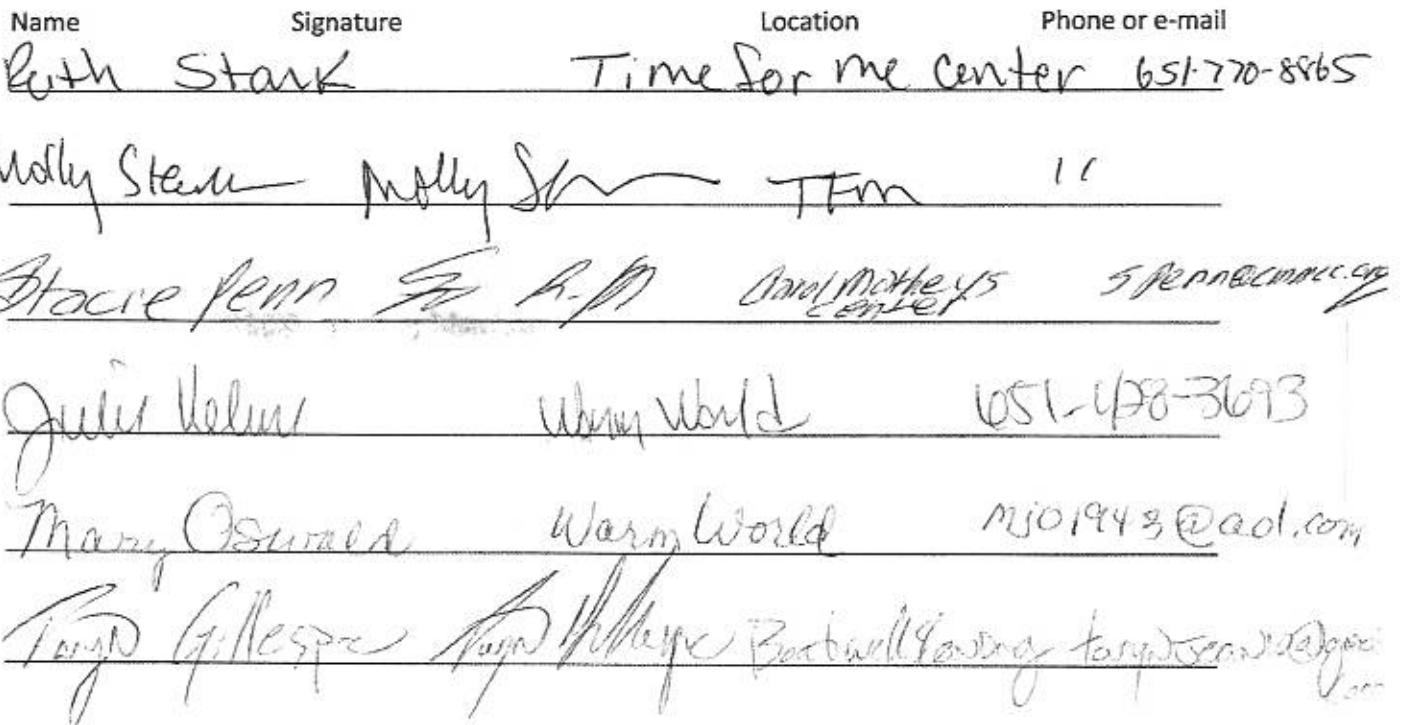 Name Signature Location Phone or e-mail
Ruth Stark Time for me Center 651-770-8865
Molly Molly TFM "
Stacie Penn Carol Matheys Center spenn@cmmcc.org
Julie Warm World
Mary Oswald Warm World mjo1943@aol.com
Taryn Gillespie Taryn Gillespie